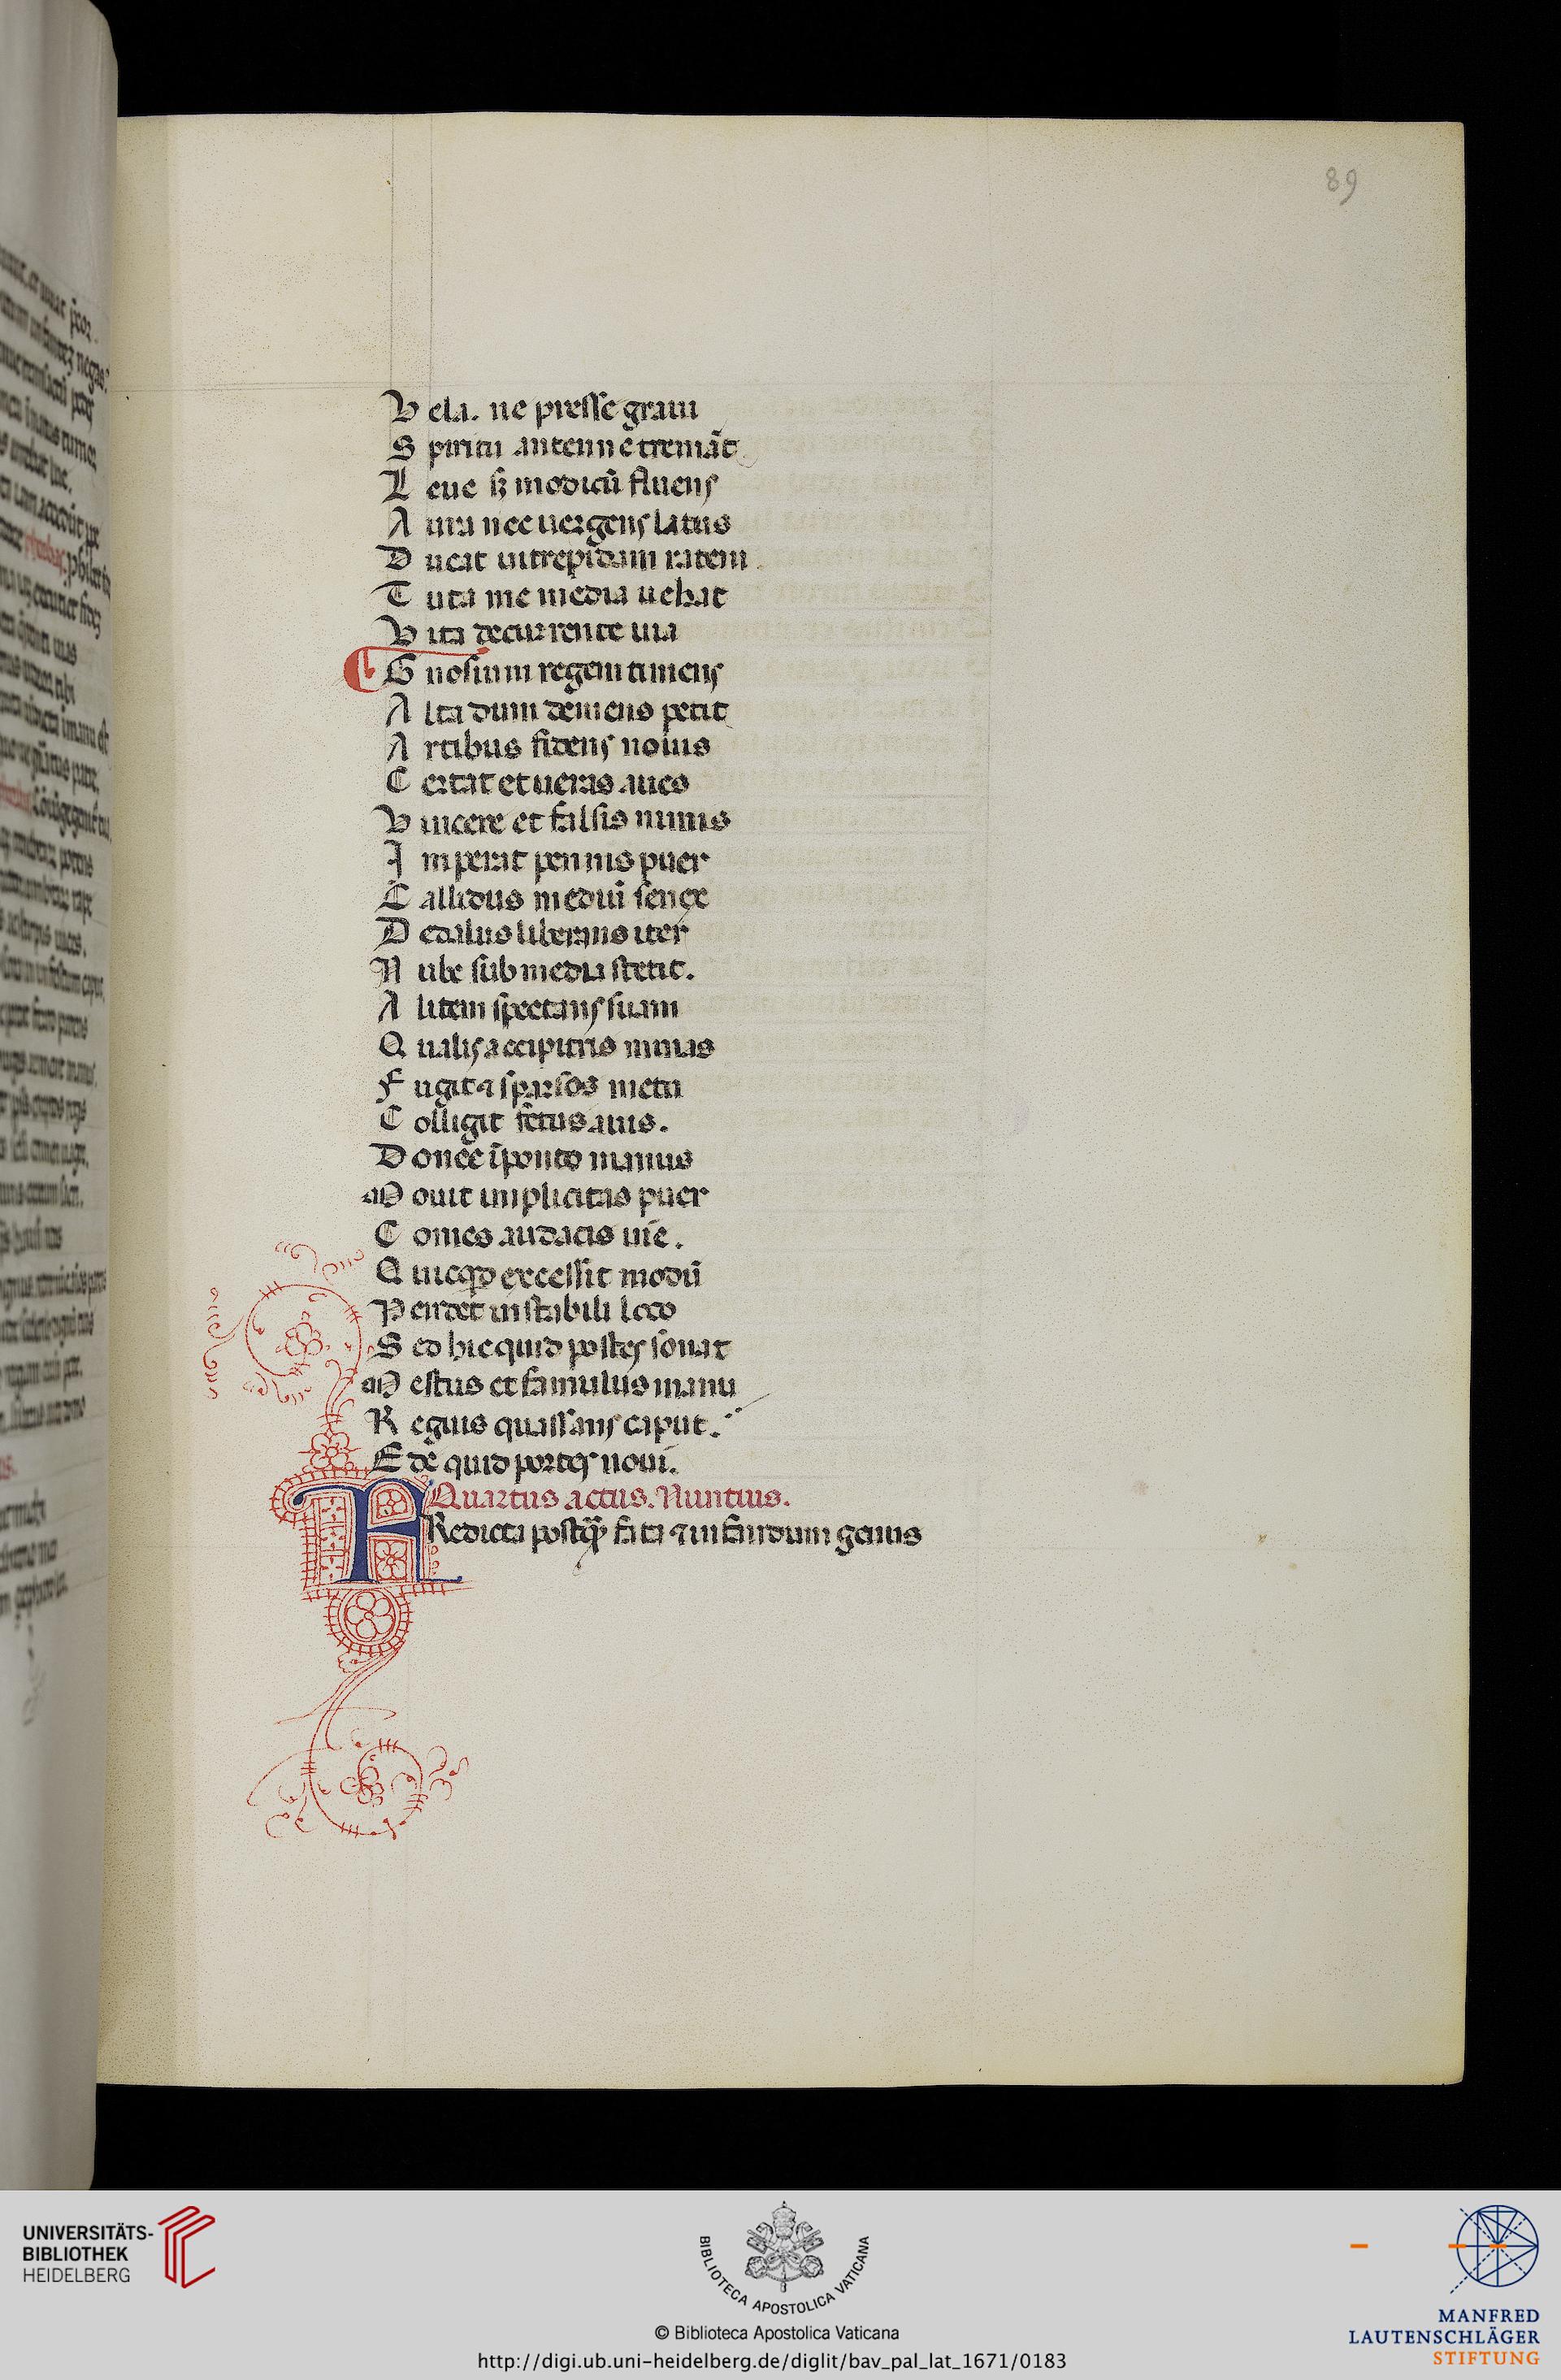 89
Vela. ne presse graui
Spiritu antenne tremāt
Leue sꝫ modicū fluens
Aura nec uergens latus
Ducat intrepidam ratem.
Tuta me media uehat
Vita decurrente uia
Gnosium regem timens
Alta dum demens petit
Artibus fidens nouis
Certat et ueras aues
Vincere et falsis nimis
Imperat pennis puer
Callidus mediū senex
Dedalus librans iter
Nube sub media stetit.
Alitem spectans suam
Qualis accipitris minas
Fugit ⁊ sparsos metu
Colligit fetus auis.
Donec īponto manus
Mouit implicitas puer
Comes audacis uie.
Quicqꝺ excessit modū
Pendet instabili loco
Sed hic quid postes sonat
Mestus et famulus manu
Regius quassans caput.
Ede quid portes noui.
Quartus actus. Nuntius.
PRedicta postqꝫ fata ⁊ infandum genus
UNIVERSITÄTS-
BIBLIOTHEK
HEIDELBERG
BIBLIOTECA APOSTOLICA VATICANA
© Biblioteca Apostolica Vaticana
http://digi.ub.uni-heidelberg.de/diglit/bav_pal_lat_1671/0183
MANFRED
LAUTENSCHLÄGER
STIFTUNG